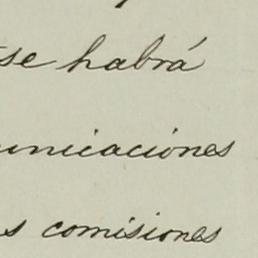 se habrá
unicaciones
s comisiones